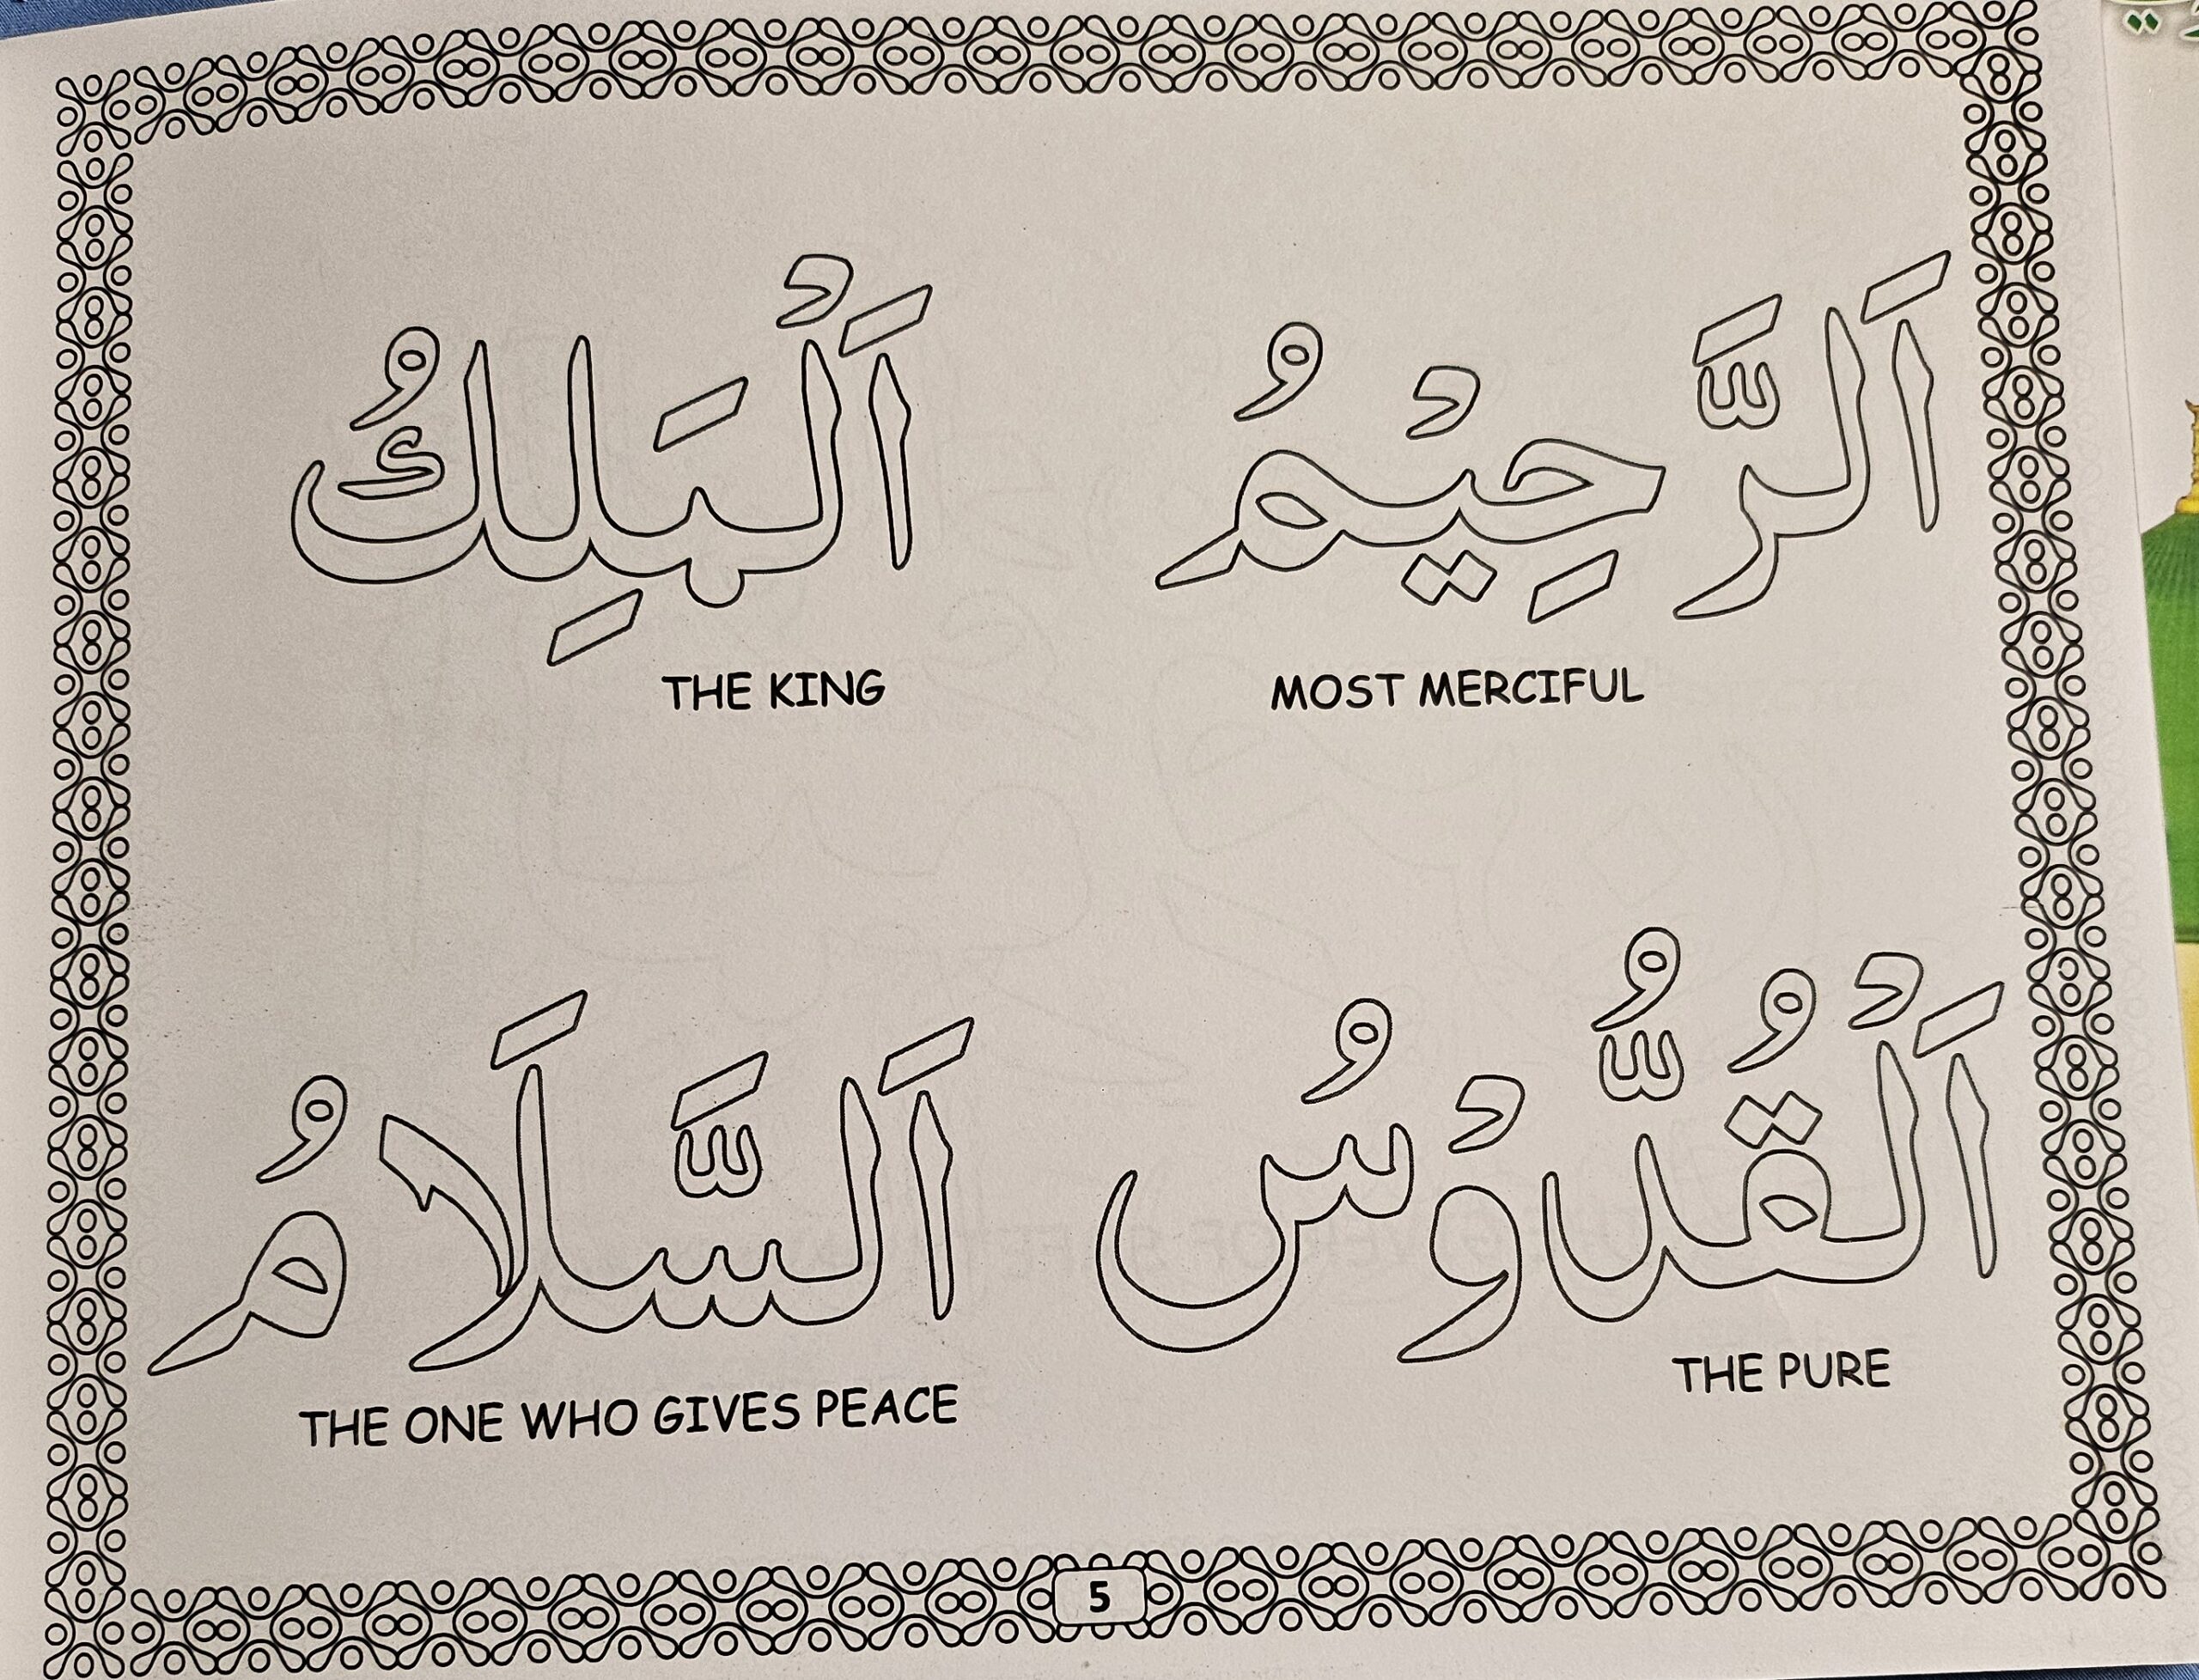 اَلرَّحِيْمُ
MOST MERCIFUL
اَلْمَلِكُ
THE KING
اَلْقُدُّوْسُ
THE PURE
اَلسَّلَامُ
THE ONE WHO GIVES PEACE
5